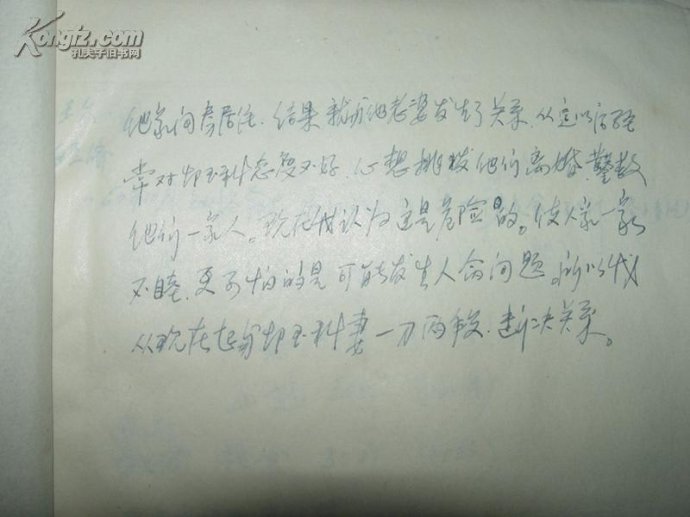 Kongfz.com
孔夫子旧书网
他家间房居住.结果就和他老婆发生了关系.从这以后经
常对郑玉科态度不好.心想挑拨他们离婚.整散
他们一家人。现在我认为这是危险的。使人家一家
不睦.更可怕的是可能发生人命问题.所以我
从现在起与郑玉科妻一刀两段.断决关系。